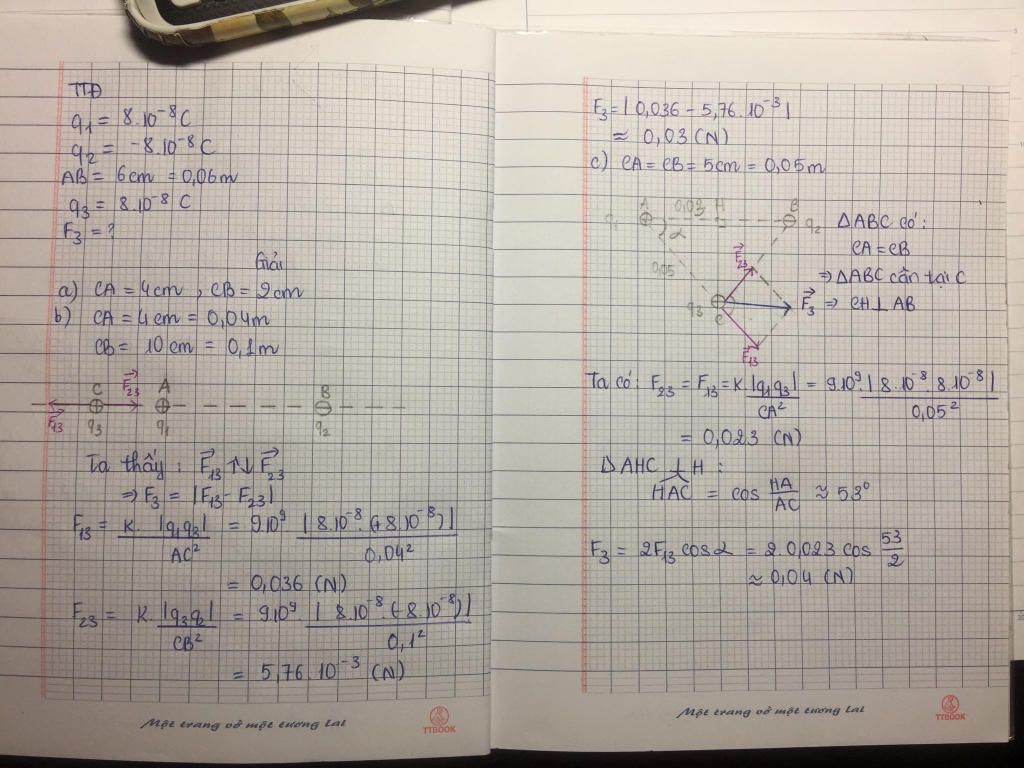 TTĐ
q₁ = 8.10⁻⁸ C
q₂ = -8.10⁻⁸ C
AB = 6cm = 0,06m
q₃ = 8.10⁻⁸ C
F₃ = ?
Giải
a) CA = 4cm , CB = 2cm
b) CA = 4cm = 0,04m
CB = 10cm = 0,1m
C F₂₃ A B
F₁₃ q₃ q₁ q₂
Ta thấy : F₁₃ ↑↓ F₂₃
⇒ F₃ = |F₁₃ - F₂₃|
F₁₃ = K. |q₁q₃| / AC² = 9.10⁹ |8.10⁻⁸.(+8.10⁻⁸)| / 0,04²
= 0,036 (N)
F₂₃ = K. |q₃q₂| / CB² = 9.10⁹. |8.10⁻⁸.(-8.10⁻⁸)| / 0,1²
= 5,76.10⁻³ (N)
Một trang vở một tương lai
TTBOOK
F₃ = |0,036 - 5,76.10⁻³|
≈ 0,03 (N)
c) CA = CB = 5cm = 0,05m
A 0,03 H B
q₁ α q₂
F₂₃
0,05
q₃ C F₃
F₁₃
ΔABC có:
CA = CB
⇒ ΔABC cân tại C
⇒ CH ⊥ AB
Ta có: F₂₃ = F₁₃ = K. |q₁q₃| / CA² = 9.10⁹. |8.10⁻⁸.8.10⁻⁸| / 0,05²
= 0,023 (N)
ΔAHC ⊥ H :
HAC = cos HA / AC ≈ 53°
F₃ = 2F₁₃ cosα = 2.0,023 cos 53 / 2
≈ 0,04 (N)
Một trang vở một tương lai
TTBOOK